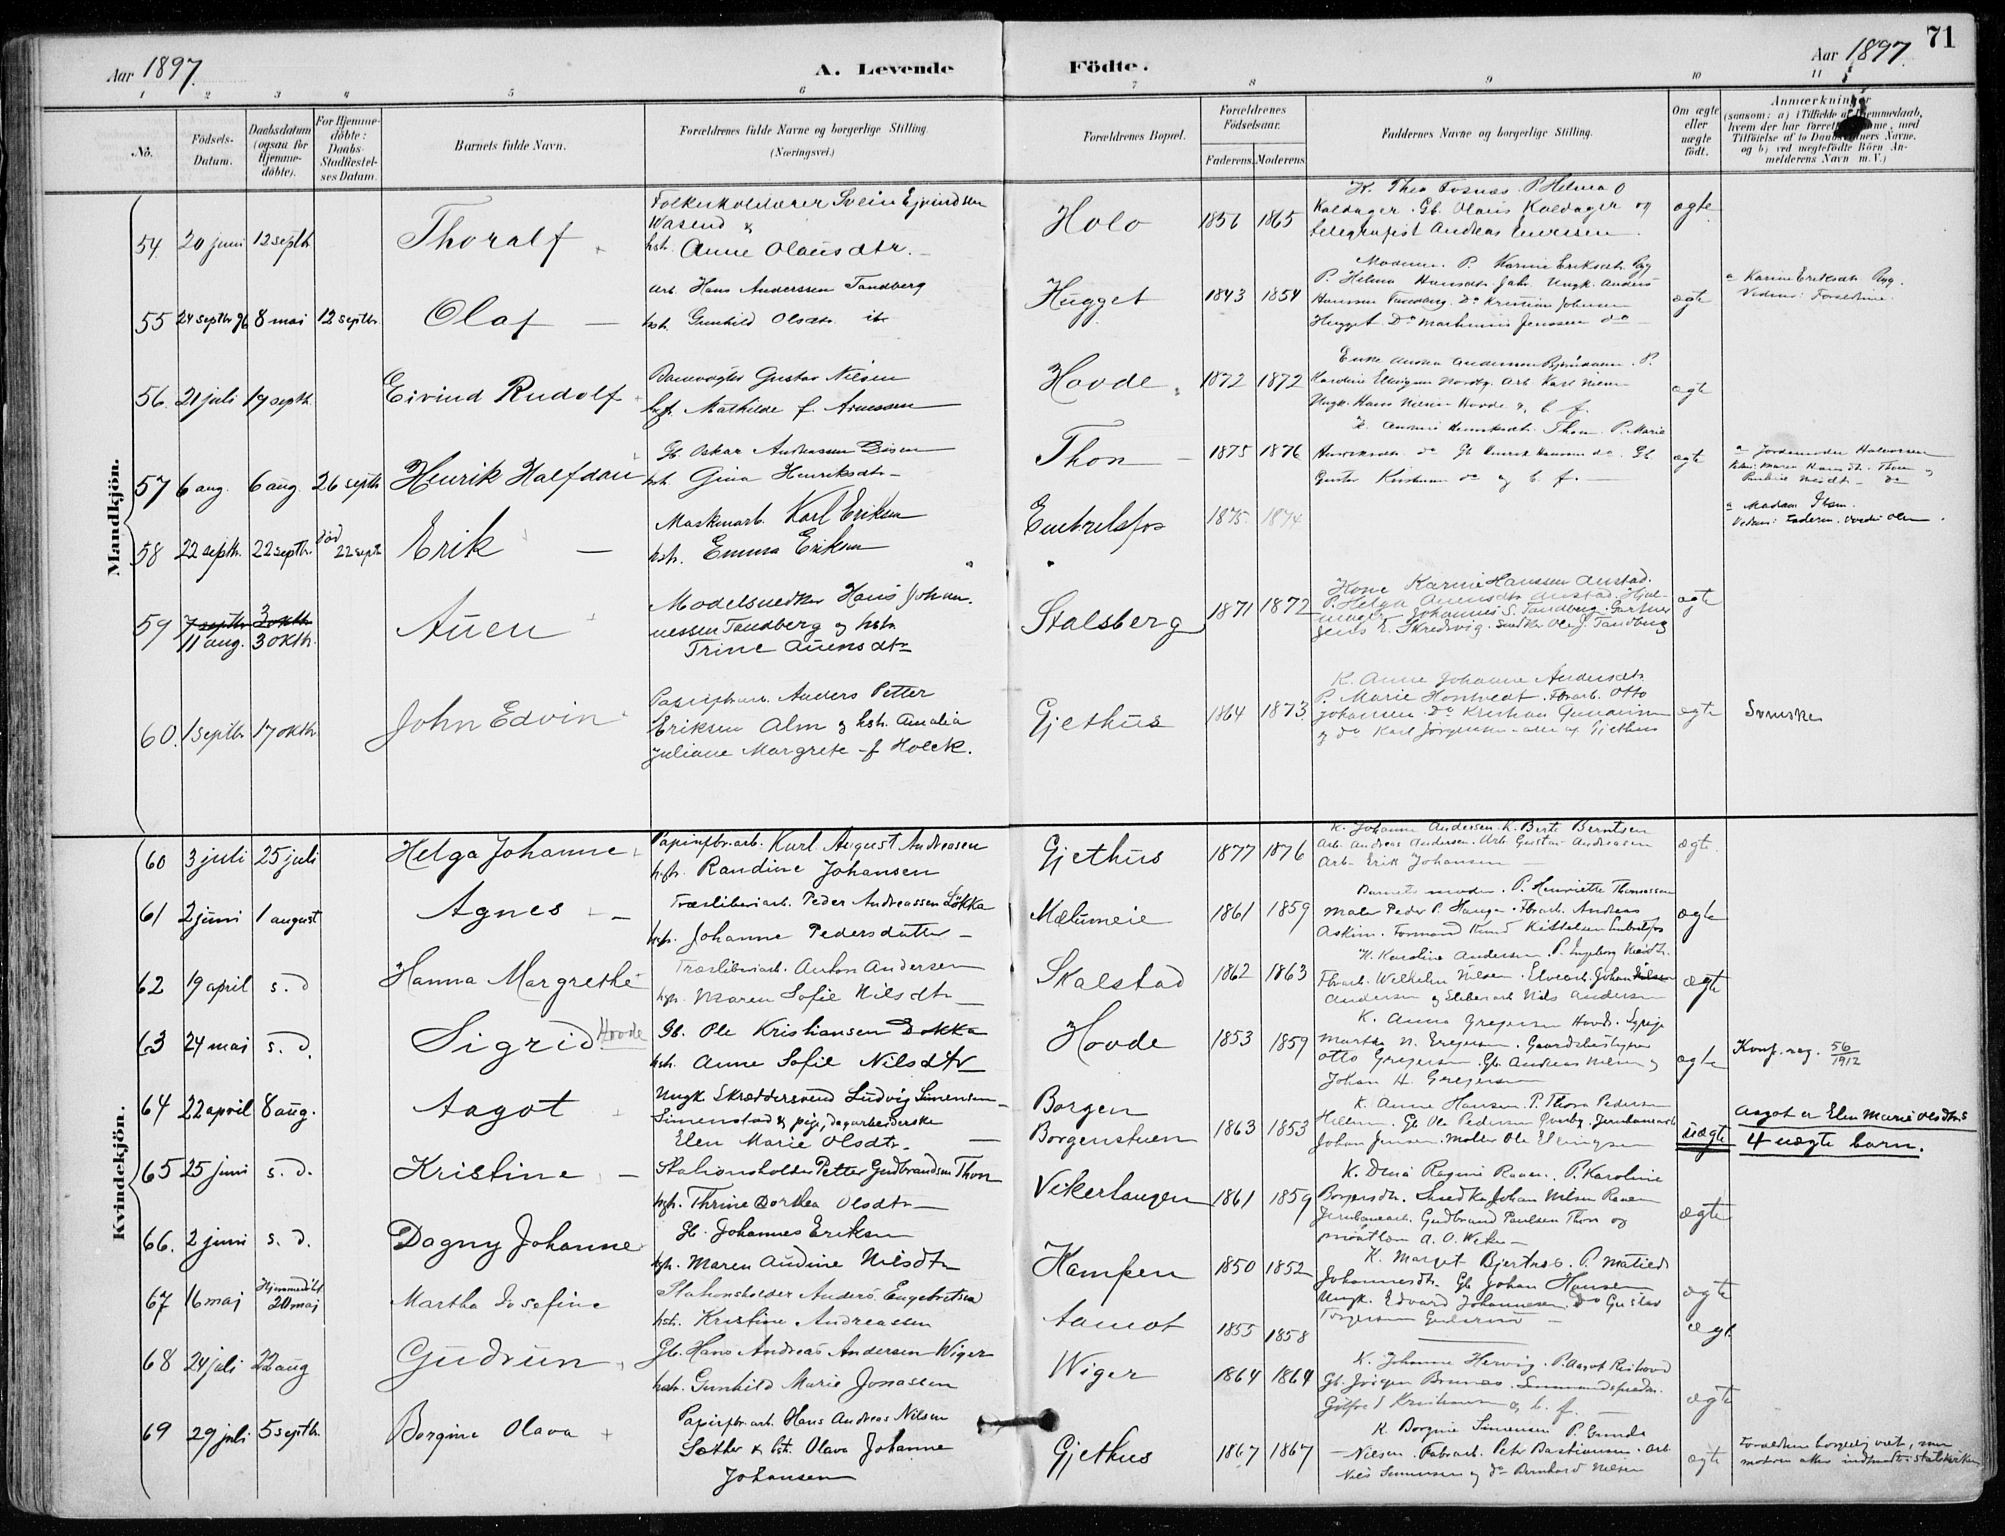 Aar 1897.
A. Levende
Födte.
Aar 1897.
71
1 2 3 4 5 6 7 8 9 10 11
No.
Födsels-
Datum.
Daabsdatum
(ogsaa for
Hjemme-
döbte).
For Hjemme-
döbte:
Daabs-
Stadfæstel-
ses Datum.
Barnets fulde Navn.
Forældrenes fulde Navne og borgerlige Stilling.
(Næringsvei.)
Forældrenes Bopæl.
Forældrenes
Födselsaar.
Faderens. Moderens.
Faddernes Navne og borgerlige Stilling.
Om ægte
eller
uægte
født.
Anmærkninger
(saasom: a) i Tilfælde af Hjemmedaab,
hvem der har forrettet samme, med
Tilföielse af to Daabsvidners Navne.
og b) ved uægtefödte Börn An-
melderens Navn m. V.)
Mandkjön.
54. 20 juni 12 septbr. Thoralf
Svein Ejvindsen
Wasend &
hstr. Anne Olausdtr.
Holo 1856 1865
K. Thea Fosnæs. P. Helma
Kaldager. Gb. Olaus Kaldager og
telegrafist Andreas
ægte
55 24 septbr 96 8 mai 12 septbr. Olaf
Arb. Hans Anderssen Tandberg
hstr. Gunhild Olsdtr.
Hugget 1843 1854
Moderen. P. Karine Eriksdtr.
P. Helena Hansdtr. Ungk. Anders
Hanssen Tandberg. Do Kristian Johnsen
Hugget. Do Marthinius Jenssen do
ægte
a Karine Eriksdtr.
Vidner: Forældrene.
56. 21 juli 19 septbr. Eivind Rudolf
Banevogter Gustav Nilsen
hstr. Mathilde f. Arnessen
Hovde 1872 1872
Enke
Arb. Karl Nilsen
Ungk. Hans Nilsen Hovde & b. f.
ægte
57 6 aug. 6 aug. 26 septbr Henrik Halfdan
Gb. Oskar Andreassen
hstr. Gina Henriksdtr
Thon 1875 1876
K. Thon. P. Marie
Henriksdtr. do Gb. Henrik Hansen do. Gb.
Gustav do og b. f.
ægte
a Jordemoder Halvorsen
Maren Hansdtr. Thon &
do
58 22 septbr. 22 septbr. död 22 septbr Erik
Maskinarb. Karl Eriksen
hstr. Emma Eriksen
Embretsfos 1875. 1874.
a Madam Ibsen.
Vidner: Faderen.
59 7 septbr 3 oktbr
11 aug. 3 oktbr. Auen
Modelsnedker Hans Johan-
nessen Tandberg og hstr.
Trine Auensdtr
Stalsberg 1871 1872
Kone Karine Hanssen Austad.
P. Helga Auensdtr Austad. Hjul-
mager Johannes S. Tandberg. Gartner
Jens E. Skredsvig. Snedker Ole J. Tandberg
ægte
60. 1 septbr. 17 oktbr. John Edvin
Papirfbr.arb. Anders Petter
Eriksen Alm og hstr. Amalia
Juliane Margrete f. Holck.
Gjethus 1864 1873
K. Anne Johanne Andersdtr.
P. Marie Hontvedt. Fbrarb. Otto
Johansen. Do Kristian
og do Karl Jørgensen - alle af Gjethus
ægte Svenske
Kvindekjön.
60 3 juli 25 juli Helga Johanne
Papirfbr.arb. Karl August Andreasen
hstr. Randine Johansen
Gjethus 1877 1876
K. Johanne Andersen. K. Berte Berntsen
Arb. Andreas Andersen. Arb. Gustav Andreasen
Arb. Erik Johansen
ægte.
61 2 juni 1 august Agnes
Træsliberiarb. Peder Andreassen Løkka
hstr. Johanne Pedersdatter
Mælumeie 1861 1859
Barnets moder. P. Henriette Thomassen
Maler Peder P. Hauger. Fbrarb. Andreas
Askim. Formand Knud Kittelsen Embretsfos
ægte
62 19 april s. d Hanna Margrethe
Træsliberiarb. Anton Andersen
hstr. Maren Sofie Nilsdtr
Skalstad 1862 1863
K. Karoline Andersen. P. Ingeborg Nilsdtr.
Fbrarb. Wilhelm Nilsen. Elvearb. Johan Nilsen
Andersen og Sliberiarb Nils Andersen
ægte
63 24 mai s. d. Sigrid Hovde
Gb. Ole Kristiansen Dokka
hstr. Anne Sofie Nilsdtr
Hovde 1853 1859
K. Anna Gregersen Hovde. Sypige
Martha N. Gregersen. Gaardsbestyrer
Otto Gregersen. Gb. Andreas Nilsen og
Johan H. Gregersen
ægte Konf. reg. 56/1912
64 22 april 8 aug. Aagot
Ungk Skræddersvend Ludvig Simensen
Simenstad & pige, dagarbeiderske
Elen Marie Olsdtr.
Borgen
Borgenstuen 1863 1853
K. Anne Hansen. P. Thora Pedersen
Hellum. Gb Ole Pedersen Qverby. Jernbanearb
Johan Jensen. Maler Ole Ellingsen
uægte
Aagot er Elen Marie Olsdtrs
4 uægte barn.
65 25 juni s. d. Kristine
Stationsholder Petter Gudbrandsen Thon
hstr. Thrine Dorthea Olsdtr
Vikerhaugen 1861 1859
K. Dina Ragine Raaen. P. Karoline
Borgersdtr. Snedker Johan Nilsen Raaen
Jernbanearb. Gudbrand Paulsen Thon og
A. O. Wiker
ægte
66. 2 juni s. d. Dagny Johanne
Gb. Johannes Eriksen
hstr. Maren Audine Nilsdtr
Kampen 1850 1852
K. Margit Bjertnæs. P. Matilde
Johannesdtr. Gb Johan Hansen
Ungk. Edvard Johannesen. Do Gustav
Torgersen
ægte
67 16 maj Hjemmedöbt 20 maj Martha Josefine
Stationsholder Anders Engebretsen
hstr. Kristine Andreassen
Aamot 1855 1858
ægt
68 24 juli 22 aug Gudrun
Gb. Hans Andreas Andersen Wiger
hstr. Gunhild Marie Jonassen
Wiger 1864 1864
K. Johanne Hervig. P. Aagot
Gb. Jörgen Brunæs.
& b. f.
ægte
69 29 juli 5 septbr. Borgine Olava
Papirfbr.arb. Hans Andreas Nilsen
Sæther & hstr. Olava Johanne
Johansen
Gjethus 1867 1867
K. Borgine Simensen P. Gunda
Nilsen. Fabrarb. Peter Bastiansen. Arb.
Nils Simensen og do Bernhard Nilsen
ægte
Forældrene borgerlig viet, men
moderen atter indmeldt i statskirken